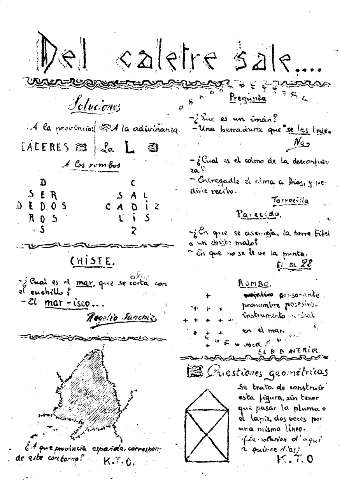 Del caletre sale....
Soluciones
A la provincia
A la adivinanza
CÁCERES
La L
A los rombos
D
SER
DEDOS
ROS
S
C
SAL
CADIZ
LIS
Z
CHISTE.
-¿Cual es el mar, que se corta con
cuchillo?
- El mar-isco...
Rogelio Sanchiz
¿A que provincia española, correspon-
de este contorno? K.T.O
Pregunta
-¿Que es un imán?
- Una herradura que se las
-¿Cual es el colmo de la desconfian-
za?
- Entregarle el alma a Dios, y pe-
dirle recibo.
Torrecilla
Parecido.
-¿En que se asemeja, la torre Eifel
a un chiste malo?
- En que no se le ve la punta.
El SI 22
ROMBO.
consonante
pronombre posesivo
instrumento
en el mar
vocal
Cuestiones geométricas
Se trata de construir
esta figura, sin tener
que pasar la pluma o
el lapiz, dos veces por
una misma linea.
(La solucion d'aqui
a quince dias)
K.T.O